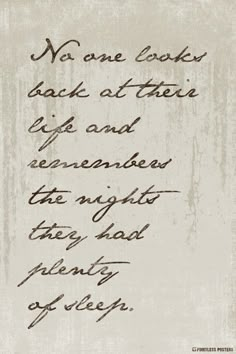 No one looks
back at their
life and
remembers
the nights
they had
plenty
of sleep.